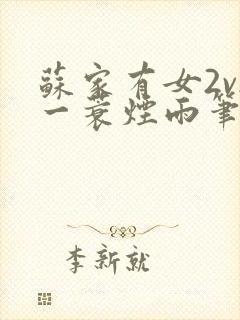 蘇家有女2v
一蓑煙雨筆
李新就